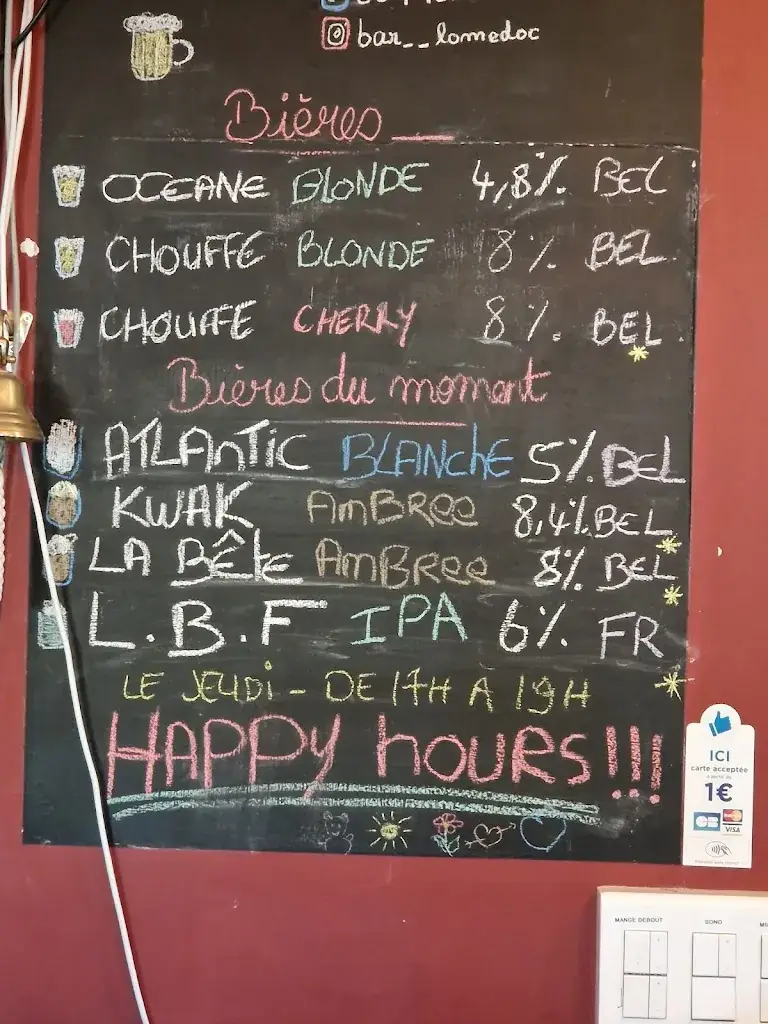 bar__lomedoc
Bières
OCEANE BLONDE 4,8% BEL
CHOUFFE BLONDE 8% BEL
CHOUFFE CHERRY 8% BEL
Bières du moment
ATLANTIC BLANCHE 5% BEL
KWAK AMBREE 8,4% BEL
LA BÊTE AMBREE 8% BEL
L.B.F IPA 6% FR
LE JEUDI - DE 17H A 19H
HAPPY HOURS!!!
ICI
carte acceptée
à partir de
1€
CB
VISA
MANGE DEBOUT
SONO